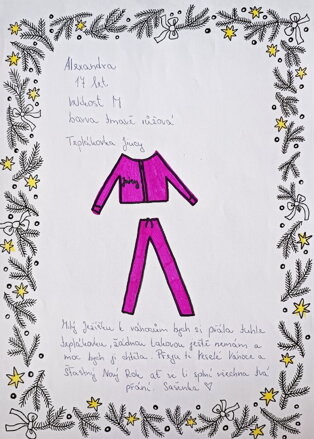 Alexandra
17 let
Velikost M
barva tmavě růžová
Tepláková Juicy
Juicy
Milý Ježíšku k vánocům bych si přála tuhle
teplákovku, žádnou takovou ještě nemám a
moc bych ji chtěla. Přeju ti Veselé Vánoce a
Šťastný Nový Rok ať se ti splní všechna tvá
přání. Sašenka ♡